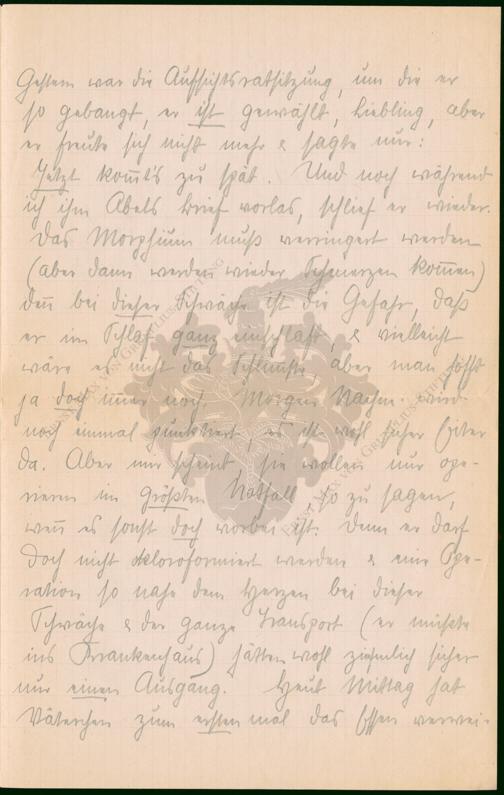 Gestern war die Aufsichtsratsitzung, um die er
so gebangt, er ist gewählt, Liebling, aber
er freute sich nicht mehr & sagte nur:
Jetzt kom̄t's zu spät. Und noch während
ich ihm Abels Brief vorlas, schlief er wieder.
Das Morphium muß verringert werden
(aber dann werden wieder Schmerzen kom̄en)
den̄ bei dieser Schwäche ist die Gefahr, daß
er im Schlaf ganz einschläft, & vielleicht
wäre es nicht das Schlimste aber man hofft
ja doch im̄er noch. Morgen Nachm. wird
noch einmal punktiert, es ist wohl sicher Eiter
da. Aber mir scheint, sie wollen nur ope-
rieren im größten Notfall so zu sagen,
wen̄ es sonst doch vorbei ist. Denn er darf
doch nicht chloroformiert werden & eine Ope-
ration so nahe dem Herzen bei dieser
Schwäche & der ganze Transport (er müßte
ins Krankenhaus) hätten wohl ziemlich sicher
nur einen Ausgang. Heut Mittag hat
Väterchen zum ersten mal das Essen verwei-